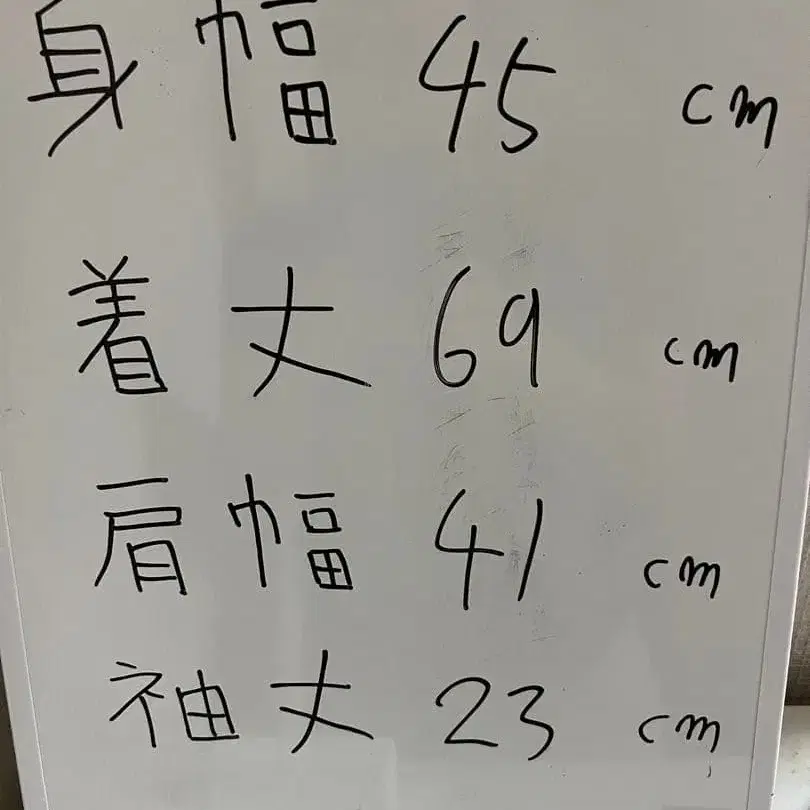 身幅 45 cm
着丈 69 cm
肩幅 41 cm
袖丈 23 cm